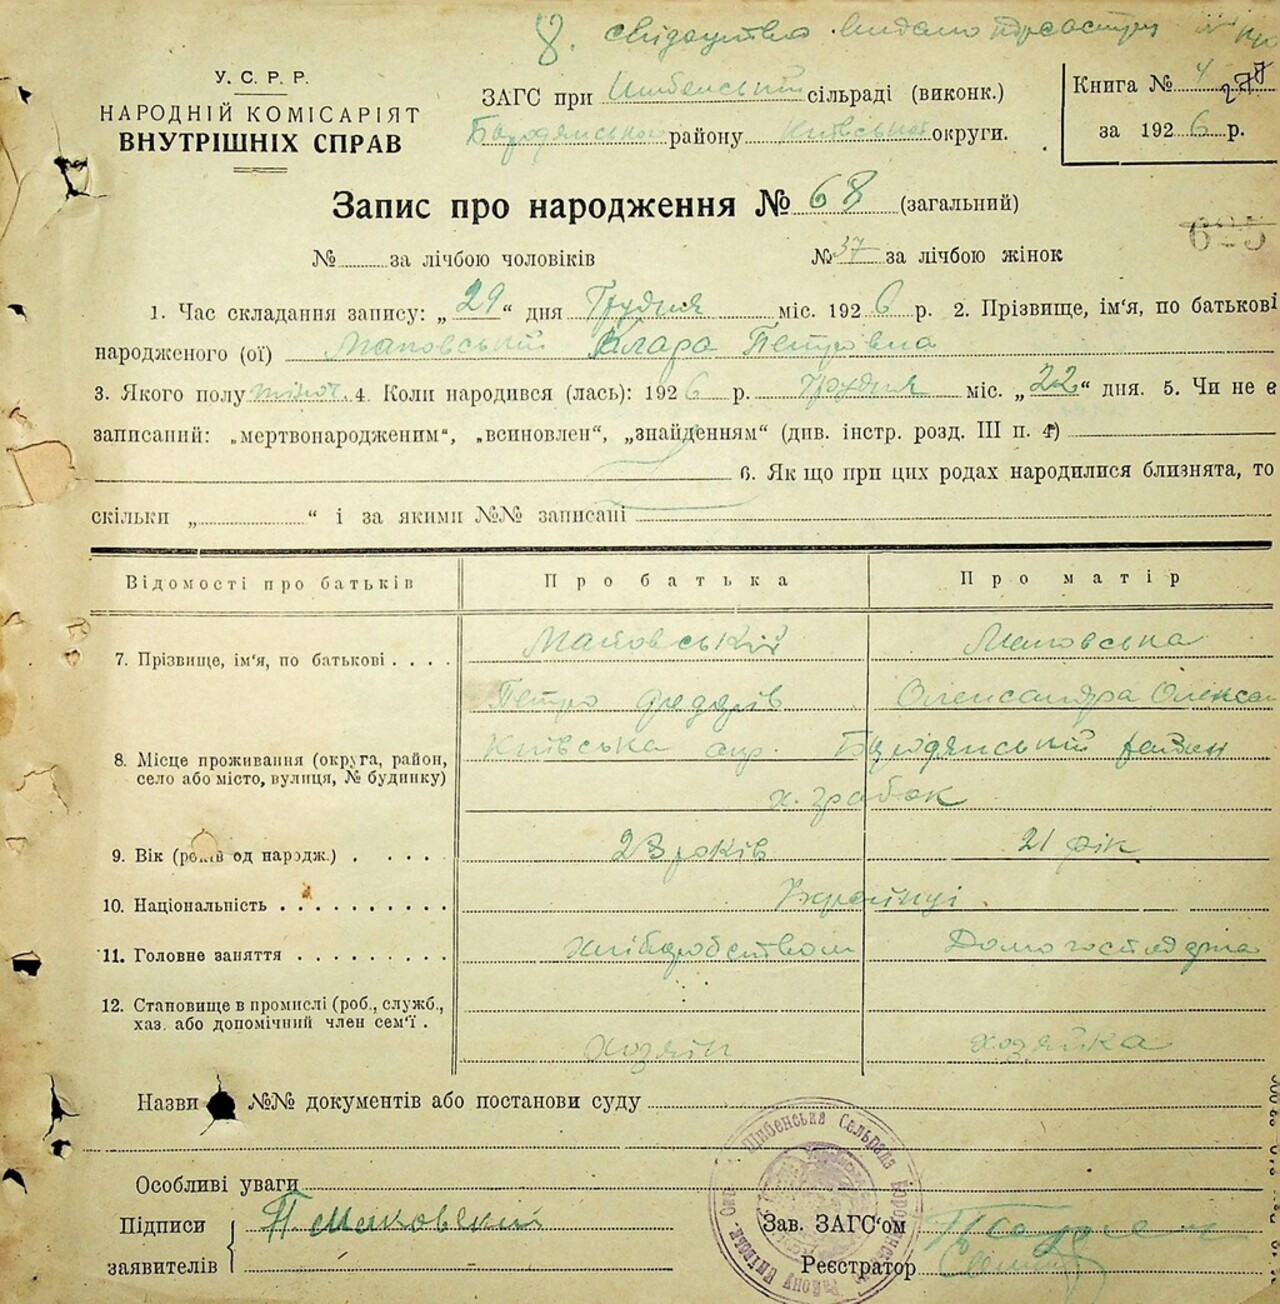 8. свідоцтво видано
У. С. Р. Р.
НАРОДНІЙ КОМІСАРІЯТ
ВНУТРІШНІХ СПРАВ
ЗАГС при Шибенській сільраді (виконк.)
Бородянського району Київської округи.
Книга № 4
за 1926 р.
Запис про народження № 68 (загальний)
№ за лічбою чоловіків
№ 37 за лічбою жінок
1. Час складання запису: „29“ дня Грудня міс. 1926 р. 2. Прізвище, ім'я, по батькові
народженого (ої) Маковський Клара Петровна
3. Якого полу жіноч. 4. Коли народився (лась): 1926 р. Грудня міс. „22“ дня. 5. Чи не є
записаний: „мертвонародженим“, „всиновлен“, „знайденням“ (див. інстр. розд. III п. 4)
6. Як що при цих родах народилися близнята, то
скільки „ “ і за якими №№ записані
Відомості про батьків
Про батька
Про матір
7. Прізвище, ім'я, по батькові . . . .
Маковський
Маковська
Петро Федорів
Олександра Олекса
8. Місце проживання (округа, район,
село або місто, вулиця, № будинку)
Київська окр. Бородянський район
х. Грабок
9. Вік (років од народж.) . . . . .
23 років
21 рік
10. Національність . . . . . . . . . .
Українці
11. Головне заняття . . . . . . . . .
Хліборобством
Домогосподарка
12. Становище в промислі (роб., служб.,
хаз. або допомічний член сем'ї .
хозяін
хозяйка
Назви №№ документів або постанови суду
Особливі уваги
Підписи
заявителів
П Маковский
Зав. ЗАГС'ом
Реєстратор
Шибенська Сельрада Бородянсько Району Київськ. Окр.